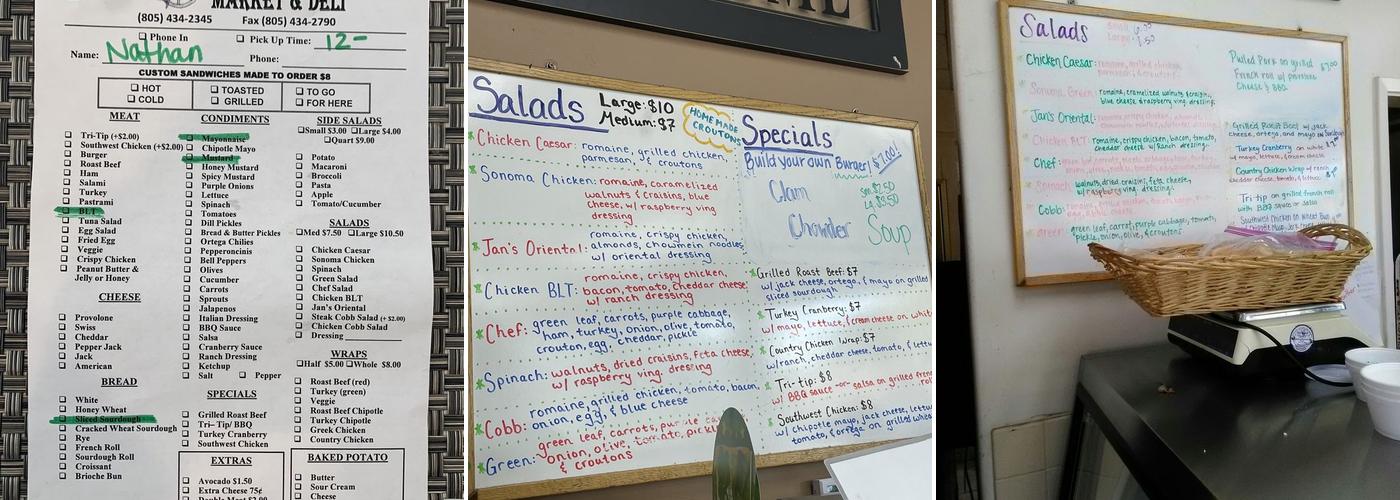 MARKET & DELI
(805) 434-2345 Fax (805) 434-2790
☐ Phone In ☐ Pick Up Time: 12-
Name: Nathan Phone:
CUSTOM SANDWICHES MADE TO ORDER $8
☐ HOT ☐ TOASTED ☐ TO GO
☐ COLD ☐ GRILLED ☐ FOR HERE
MEAT
☐ Tri-Tip (+$2.00)
☐ Southwest Chicken (+$2.00)
☐ Burger
☐ Roast Beef
☐ Ham
☐ Salami
☐ Turkey
☐ Pastrami
☐ BLT
☐ Tuna Salad
☐ Egg Salad
☐ Fried Egg
☐ Veggie
☐ Crispy Chicken
☐ Peanut Butter &
Jelly or Honey
CHEESE
☐ Provolone
☐ Swiss
☐ Cheddar
☐ Pepper Jack
☐ Jack
☐ American
BREAD
☐ White
☐ Honey Wheat
☐ Sliced Sourdough
☐ Cracked Wheat Sourdough
☐ Rye
☐ French Roll
☐ Sourdough Roll
☐ Croissant
☐ Brioche Bun
CONDIMENTS
☐ Mayonnaise
☐ Chipotle Mayo
☐ Mustard
☐ Honey Mustard
☐ Spicy Mustard
☐ Purple Onions
☐ Lettuce
☐ Spinach
☐ Tomatoes
☐ Dill Pickles
☐ Bread & Butter Pickles
☐ Ortega Chilies
☐ Pepperoncinis
☐ Bell Peppers
☐ Olives
☐ Cucumber
☐ Carrots
☐ Sprouts
☐ Jalapenos
☐ Italian Dressing
☐ BBQ Sauce
☐ Salsa
☐ Cranberry Sauce
☐ Ranch Dressing
☐ Ketchup
☐ Salt ☐ Pepper
SPECIALS
☐ Grilled Roast Beef
☐ Tri- Tip/ BBQ
☐ Turkey Cranberry
☐ Southwest Chicken
EXTRAS
☐ Avocado $1.50
☐ Extra Cheese 75¢
SIDE SALADS
☐Small $3.00 ☐Large $4.00
☐Quart $9.00
☐ Potato
☐ Macaroni
☐ Broccoli
☐ Pasta
☐ Apple
☐ Tomato/Cucumber
SALADS
☐Med $7.50 ☐Large $10.50
☐ Chicken Caesar
☐ Sonoma Chicken
☐ Spinach
☐ Green Salad
☐ Chef Salad
☐ Chicken BLT
☐ Jan's Oriental
☐ Steak Cobb Salad (+ $2.00)
☐ Chicken Cobb Salad
☐ Dressing
WRAPS
☐Half $5.00 ☐Whole $8.00
☐ Roast Beef (red)
☐ Turkey (green)
☐ Veggie
☐ Roast Beef Chipotle
☐ Turkey Chipotle
☐ Greek Chicken
☐ Country Chicken
BAKED POTATO
☐ Butter
☐ Sour Cream
☐ Cheese
Salads Large: $10
Medium: $7
HOMEMADE
CROUTONS
Chicken Caesar: romaine, grilled chicken,
parmesan, & croutons
Sonoma Chicken: romaine, caramelized
walnuts & craisins, blue
cheese, w/ raspberry ving
dressing
Jan's Oriental: romaine, crispy chicken,
almonds, chowmein noodles,
w/ oriental dressing
Chicken BLT: romaine, crispy chicken,
bacon, tomato, cheddar cheese
w/ ranch dressing
Chef: green leaf, carrots, purple cabbage,
ham, turkey, onion, olive, tomato,
crouton, egg, cheddar, pickle
Spinach: walnuts, dried craisins, feta cheese,
w/ raspberry ving. dressing
Cobb: romaine, grilled chicken, tomato, bacon,
onion, egg, & blue cheese
Green: green leaf, carrots, purple
onion, olive, tomato, pickle
& croutons
Specials
Build your own Burger! $7.00!
Clam
Chowder
Sm. $2.50
La. $3.50
Soup
Grilled Roast Beef: $7
w/ jack cheese, ortega, & mayo on grilled
sliced sourdough
Turkey Cranberry: $7
w/ mayo, lettuce, & cream cheese on
Country Chicken Wrap: $7
w/ranch, cheddar cheese, tomato, &
Tri-tip: $8
w/ BBQ sauce -or- salsa on grilled
Southwest Chicken: $8
w/ chipotle mayo, jack cheese,
tomato, & ortega on grilled
Salads
Chicken Caesar:
Sonoma Green: romaine, caramelized walnuts & craisins,
blue cheese & raspberry ving. dressing.
Jan's Oriental:
Chicken BLT: romaine, crispy chicken, bacon, tomato,
cheddar cheese w/ Ranch dressing.
Chef:
Spinach: walnuts, dried craisins, feta cheese,
w/ raspberry ving. dressing
Cobb:
green: green leaf, carrot, purple cabbage, tomato,
pickle, onion, olive, & croutons
Pulled Pork on grilled $7.00
French roll w/
Cheese & BBQ
Grilled Roast Beef w/ jack
cheese, ortega, and mayo on
Turkey Cranberry on white
w/ mayo, lettuce,
Country Chicken Wrap w/ ranch
cheddar cheese, tomato, & lettuce
Tri tip on grilled french roll
with BBQ sauce or salsa
Southwest Chicken on Wheat Bun